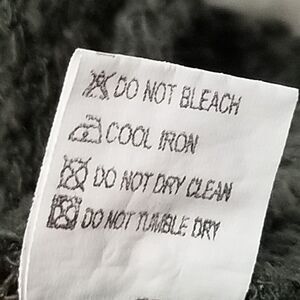 DO NOT BLEACH
COOL IRON
DO NOT DRY CLEAN
DO NOT TUMBLE DRY